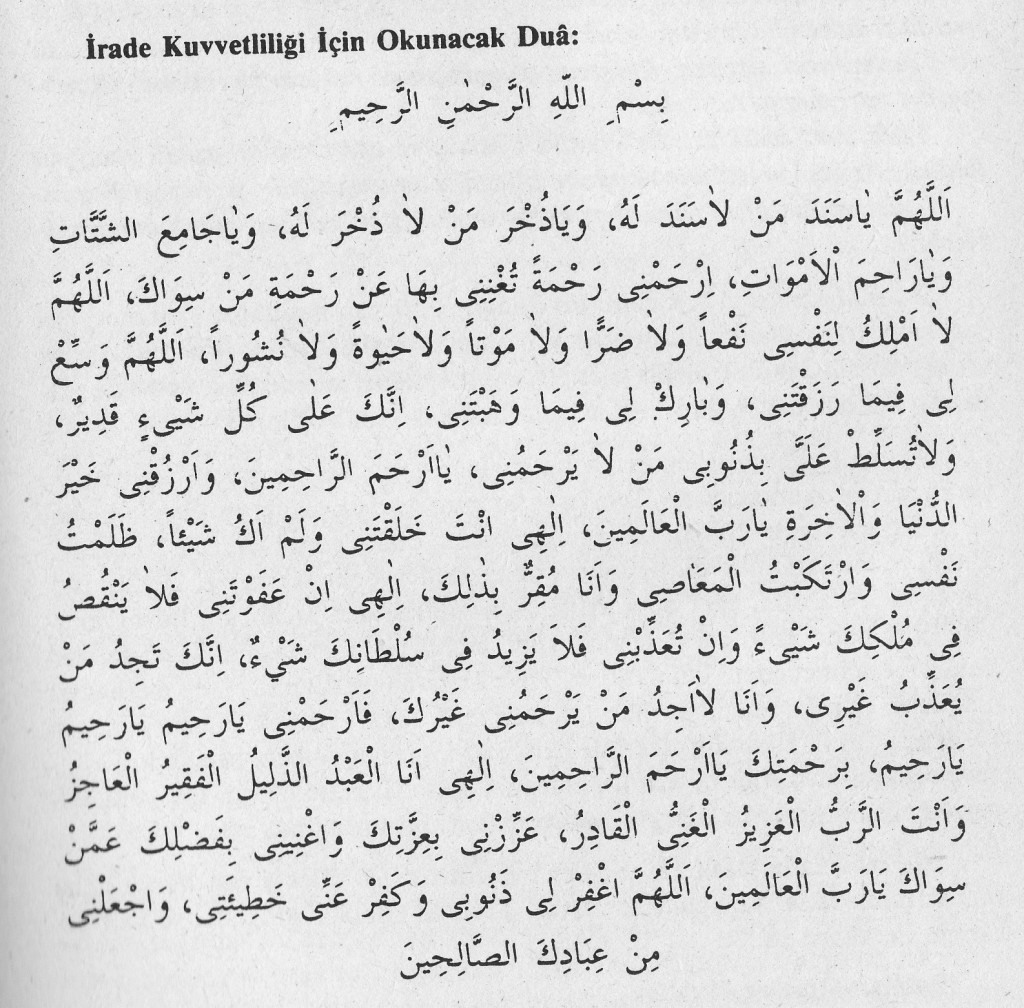 İrade Kuvvetliliği İçin Okunacak Duâ:
بِسْمِ اللّٰهِ الرَّحْمٰنِ الرَّحِيمِ
اَللَّهُمَّ يٰاسَنَدَ مَنْ لاٰسَنَدَ لَهُ، وَيَاذُخْرَ مَنْ لاٰ ذُخْرَ لَهُ، وَيٰاجَامِعَ الشَّتَّاتِ
وَيٰارَاحِمَ الْاَمْوَاتِ، اِرْحَمْنِى رَحْمَةً تُغْنِنِى بِهَا عَنْ رَحْمَةِ مَنْ سِوَاكَ، اَللَّهُمَّ
لاٰ اَمْلِكُ لِنَفْسِى نَفْعاً وَلاٰ ضَرًّا وَلاٰ مَوْتاً وَلاٰحَيٰوةً وَلاٰ نُشُوراً، اَللَّهُمَّ وَسِّعْ
لِى فِيمَا رَزَقْتَنِى، وَبٰارِكْ لِى فِيمَا وَهَبْتَنِى، اِنَّكَ عَلٰى كُلِّ شَيْىءٍ قَدِيرٌ،
وَلاٰتُسَلِّطْ عَلَىَّ بِذُنُوبِى مَنْ لاٰ يَرْحَمُنِى، يٰااَرْحَمَ الرَّاحِمِين، وَارْزُقْنِى خَيْرَ
الدُّنْيَا وَالْاٰخِرَةِ يٰارَبَّ الْعَالَمِينَ، اِلٰهِى انْتَ خَلَقْتَنِى وَلَمْ اَكُ شَيْئاً، ظَلَمْتُ
نَفْسِى وَارْتَكَبْتُ الْمَعَاصِى وَاَنَا مُقِرٌّ بِذٰلِكَ، اِلٰهِى اِنْ عَفَوْتَنِى فَلاٰ يَنْقُصُ
فِى مُلْكِكَ شَيْىءً وَاِنْ تُعَذِّبْنِى فَلاَ يَزِيدُ فِى سُلْطَانِكَ شَيْءٌ، اِنَّكَ تَجِدُ مَنْ
يُعَذِّبُ غَيْرِى، وَاَنَا لاٰاَجِدُ مَنْ يَرْحَمُنِى غَيْرُكَ، فَارْحَمْنِى يَارَحِيمُ يَارَحِيمُ
يَارَحِيمُ، بِرَحْمَتِكَ يَااَرْحَمَ الرَّاحِمِينَ، اِلٰهِى اَنَا الْعَبْدُ الذَّلِيلُ الْفَقِيرُ الْعَاجِزُ
وَاَنْتَ الرَّبُّ الْعَزِيزُ الْغَنِىُّ الْقَادِرُ، عَزِّزْنِى بِعِزَّتِكَ وَاغْنِينِى بِفَضْلِكَ عَمَّنْ
سِوَاكَ يَارَبَّ الْعَالَمِينَ، اَللَّهُمَّ اغْفِرْ لِى ذَنُوبِى وَكَفِرْ عَنِّى خَطِيئَتِى، وَاجْعَلْنِى
مِنْ عِبَادِكَ الصَّالِحِينَ